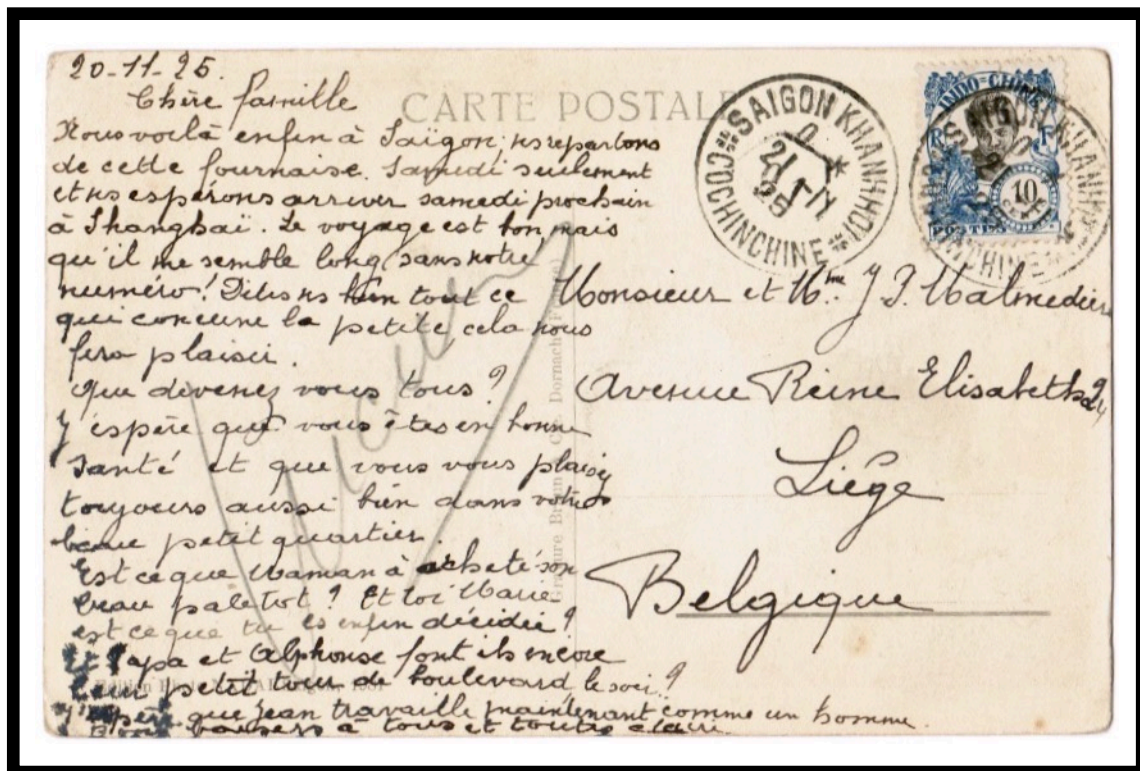 20-11-25.
Chère famille
CARTE POSTALE
Nous voilà enfin à Saïgon; ns repartons
de cette fournaise. Samedi seulement
et ns espérons arriver samedi prochain
à Shanghaï. Le voyage est bon mais
qu'il me semble long sans notre
numéro! Dites ns bien tout ce
qui concerne la petite cela nous
fera plaisir.
Que devenez vous tous?
J'espère que vous êtes en bonne
santé et que vous vous plaisez
toujours aussi bien dans votre
beau petit quartier.
Est ce que Maman à acheté son
beau paletot? Et toi Marie
est ce que tu es enfin décidée?
Et Papa et Alphonse font ils encore
leur petit tour de boulevard le soir?
J'espère que Jean travaille maintenant comme un homme.
Bons baisers à tous et toutes
SAIGON KHANHHOI
21-11
25
COCHINCHINE
INDO=CHINE
R F
10
POSTES
SAIGON KHANHHOI
Monsieur et Mme J. J. Malmedier
Avenue Reine Elisabeth 24
Liége
Belgique
Gravure Braun & Cie, Dornach